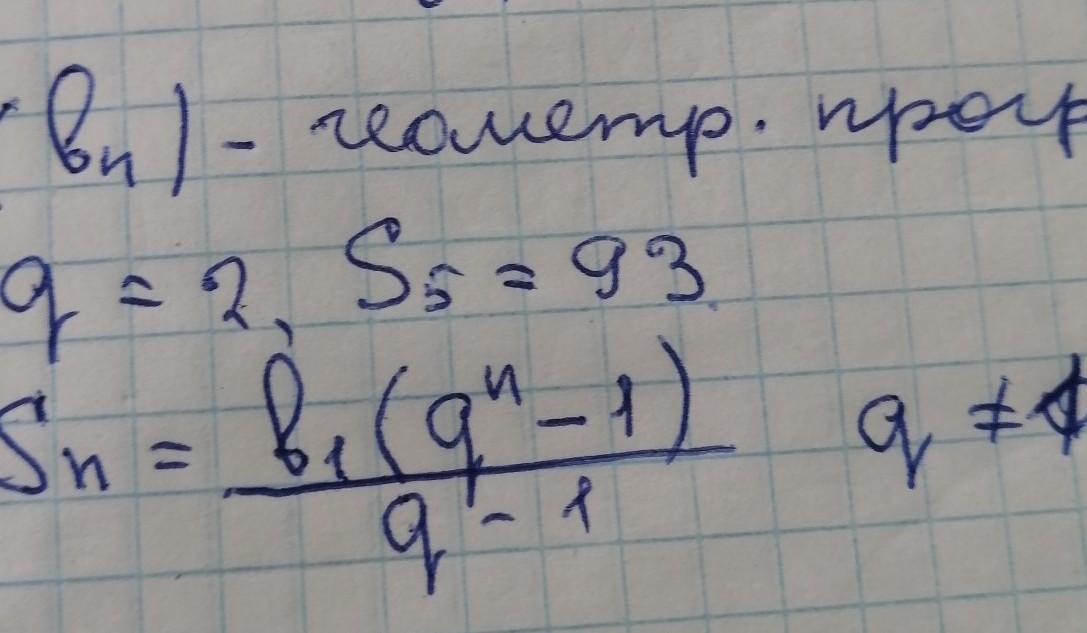 (bₙ) - геометр. прогр
q = 2, S₅ = 93
Sₙ = b₁(qⁿ - 1) / q - 1 q ≠ 1